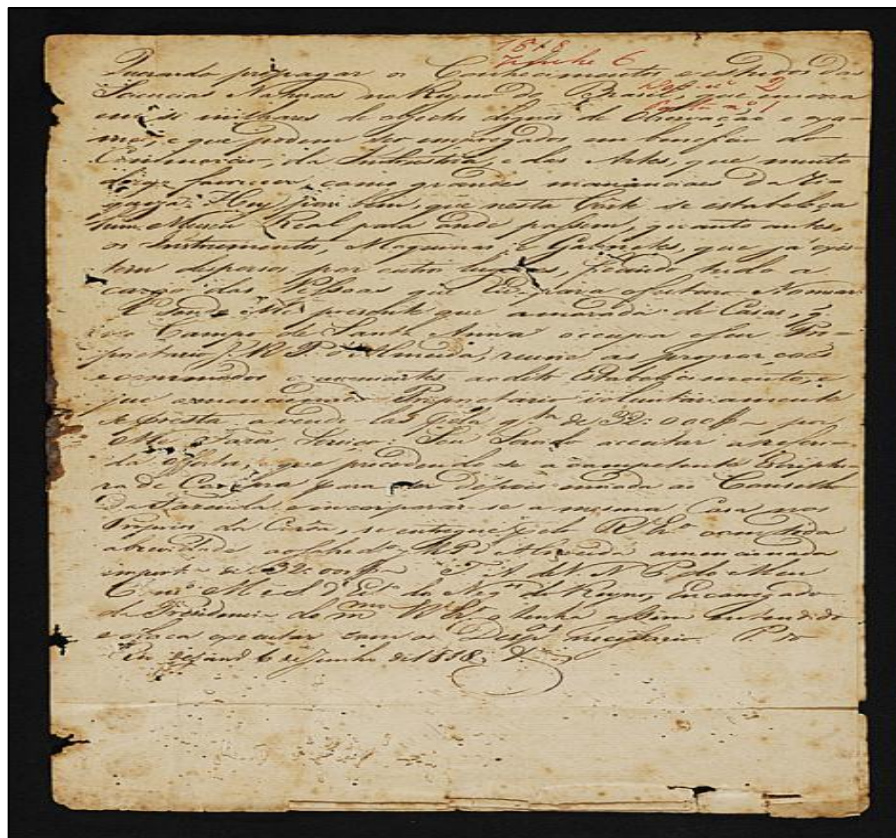 1818
Junho 6
Querendo propagar os Conhecimentos, e estudos das
Sciencias Naturaes no Reyno do Brasil, que encerra
em si milhares de objectos dignos de Observação, e exa-
me, e que podem ser empregados em beneficio do
Commercio, da Industria, e das Artes, que muito
favorecer, como grandes mananciaes da ri-
queza: Hey por bem, que nesta Corte se estabeleça
hum Museu Real para onde passem, quanto antes,
os Instrumentos, Maquinas, e Gabinetes, que já exis-
tem dispersos por outros lugares, ficando tudo a
cargo das Pessoas que Eu para o futuro Nomear
E sendo-Me presente que a morada de Casas, q
no Campo de Santa Anna occupa o seu Pro-
prietario, J. R. P. d'Almeida, reune as proporções
e commodos convenientes ao dito Estabelecimento, e
que o mencionado Proprietario voluntariamente
se presta a vende-las pela q.ta de 32:000$ por
Me fazer Serviço: Sou Servido acceitar a referi-
da offerta, e que procedendo-se á competente Escriptu-
ra de Compra para ser depois enviada ao Conselho
da Fazenda, e incorporar-se a mesma Casa nos
Proprios da Coroa, se entregue pelo R.l Er.o
ao sobred.o J. R. P. Almeida a mencionada
import.a de 32:000$
do Reyno, Encarregado
da Presidencia do m.mo R.l Er.o o tenha assim entendido
e o faça executar com os Desp.os necessarios.
6 de Junho de 1818